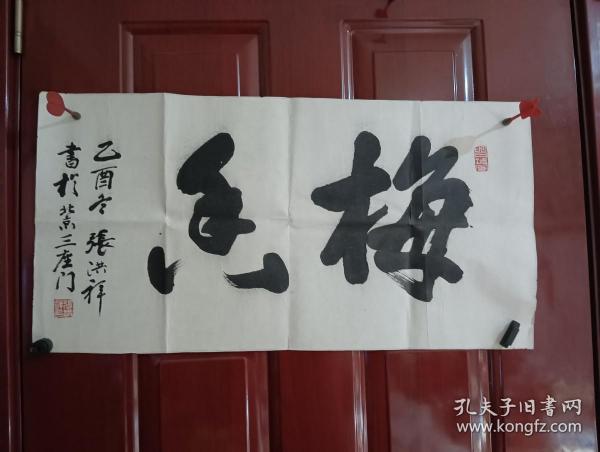 梅香
乙酉冬 張洪祥
書於北京三座门
孔夫子旧書网
www.kongfz.com